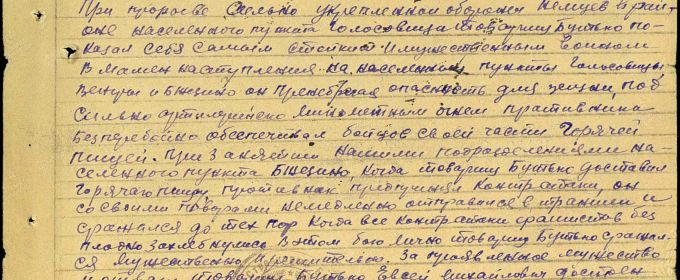 При прорыве сильно укрепленной обороны немцев в рай-
оне населенного пункта Голосовица товарищ Бутько по-
казал себя самым стойким и мужественным воином
В момен наступления на населенные пункты Голосовицы
и Бжезино он пренебрегая опасность для жизни, под
сильно артилерийско минометным огнем противника
Безперебойно обеспечивал бойцов своей части горячей
пищей. При занятии нашими подразделениями на-
селенного пункта Бжезино, когда товарищ Бутько доставил
горячую пищу, противник предпринял контратаки, он
со своими поварами немедленно отправился в траншею и
сражался до тех пор когда все контратаки фашистов без
плодно захлебнулись В этом бою лично товарищ Бутько сражал-
ся мужественно и решительно. За проявленное мужество
товарищ Бутько Евсей Михайлович достоен